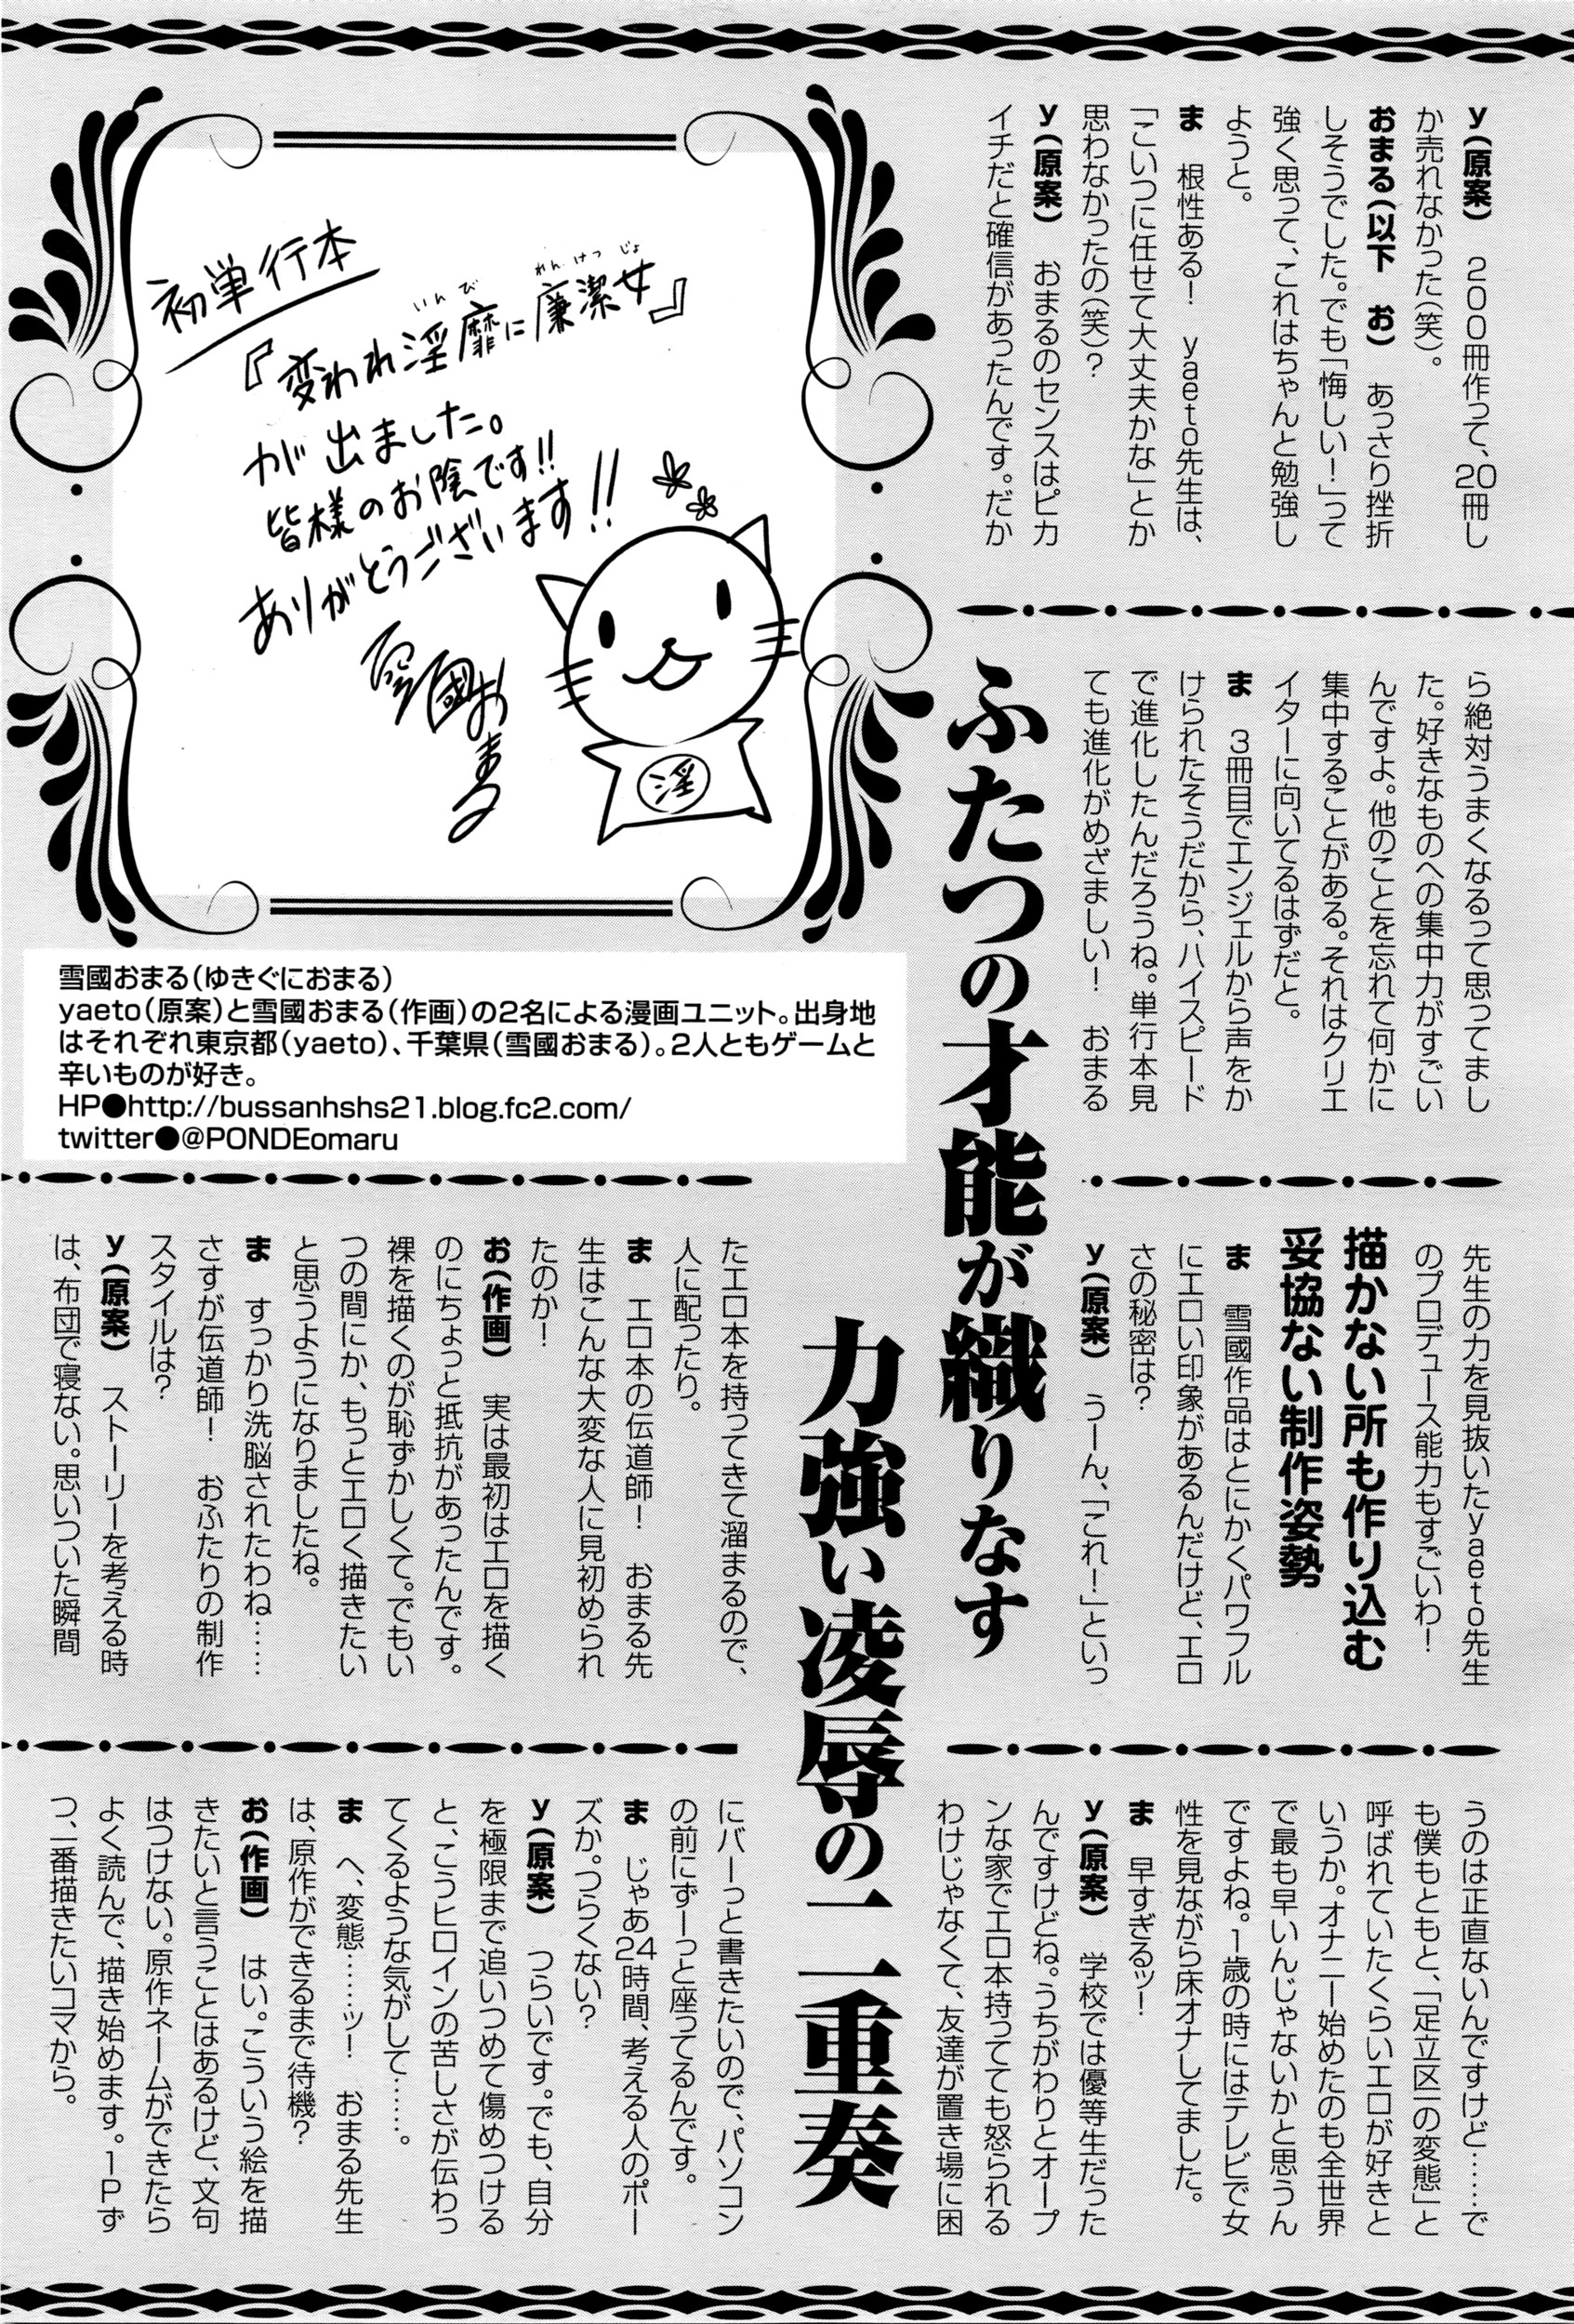 y(原案)　200冊作って、20冊し
か売れなかった(笑)。
おまる(以下　お)　あっさり挫折
しそうでした。でも「悔しい!」って
強く思って、これはちゃんと勉強し
ようと。
ま　根性ある!　yaeto先生は、
「こいつに任せて大丈夫かな」とか
思わなかったの(笑)?
y(原案)　おまるのセンスはピカ
イチだと確信があったんです。だか
ら絶対うまくなるって思ってまし
た。好きなものへの集中力がすごい
んですよ。他のことを忘れて何かに
集中することがある。それはクリエ
イターに向いてるはずだと。
ま　3冊目でエンジェルから声をか
けられたそうだから、ハイスピード
で進化したんだろうね。単行本見
ても進化がめざましい!　おまる
先生の力を見抜いたyaeto先生
のプロデュース能力もすごいわ!
描かない所も作り込む
妥協ない制作姿勢
ま　雪國作品はとにかくパワフル
にエロい印象があるんだけど、エロ
さの秘密は?
y(原案)　うーん、「これ!」といっ
うのは正直ないんですけど……で
も僕もともと、「足立区一の変態」と
呼ばれていたくらいエロが好きと
いうか。オナニー始めたのも全世界
で最も早いんじゃないかと思うん
ですよね。1歳の時にはテレビで女
性を見ながら床オナしてました。
ま　早すぎるッ!
y(原案)　学校では優等生だった
んですけどね。うちがわりとオープ
ンな家でエロ本持ってても怒られる
わけじゃなくて、友達が置き場に困
ふたつの才能が織りなす
力強い凌辱の二重奏
初単行本
『変われ淫靡に廉潔女』
いんび
れんけつじょ
が出ました。
皆様のお陰です!!
ありがとうございます!!
雪國おまる
淫
雪國おまる(ゆきぐにおまる)
yaeto(原案)と雪國おまる(作画)の2名による漫画ユニット。出身地
はそれぞれ東京都(yaeto)、千葉県(雪國おまる)。2人ともゲームと
辛いものが好き。
HP●http://bussanhshs21.blog.fc2.com/
twitter●@PONDEomaru
たエロ本を持ってきて溜まるので、
人に配ったり。
ま　エロ本の伝道師!　おまる先
生はこんな大変な人に見初められ
たのか!
お(作画)　実は最初はエロを描く
のにちょっと抵抗があったんです。
裸を描くのが恥ずかしくて。でもい
つの間にか、もっとエロく描きたい
と思うようになりましたね。
ま　すっかり洗脳されたわね……
さすが伝道師!　おふたりの制作
スタイルは?
y(原案)　ストーリーを考える時
は、布団で寝ない。思いついた瞬間
にバーっと書きたいので、パソコン
の前にずーっと座ってるんです。
ま　じゃあ24時間、考える人のポー
ズか。つらくない?
y(原案)　つらいです。でも、自分
を極限まで追いつめて傷めつける
と、こうヒロインの苦しさが伝わっ
てくるような気がして……。
ま　へ、変態……ッ!　おまる先生
は、原作ができるまで待機?
お(作画)　はい。こういう絵を描
きたいと言うことはあるけど、文句
はつけない。原作ネームができたら
よく読んで、描き始めます。1Pず
つ、一番描きたいコマから。